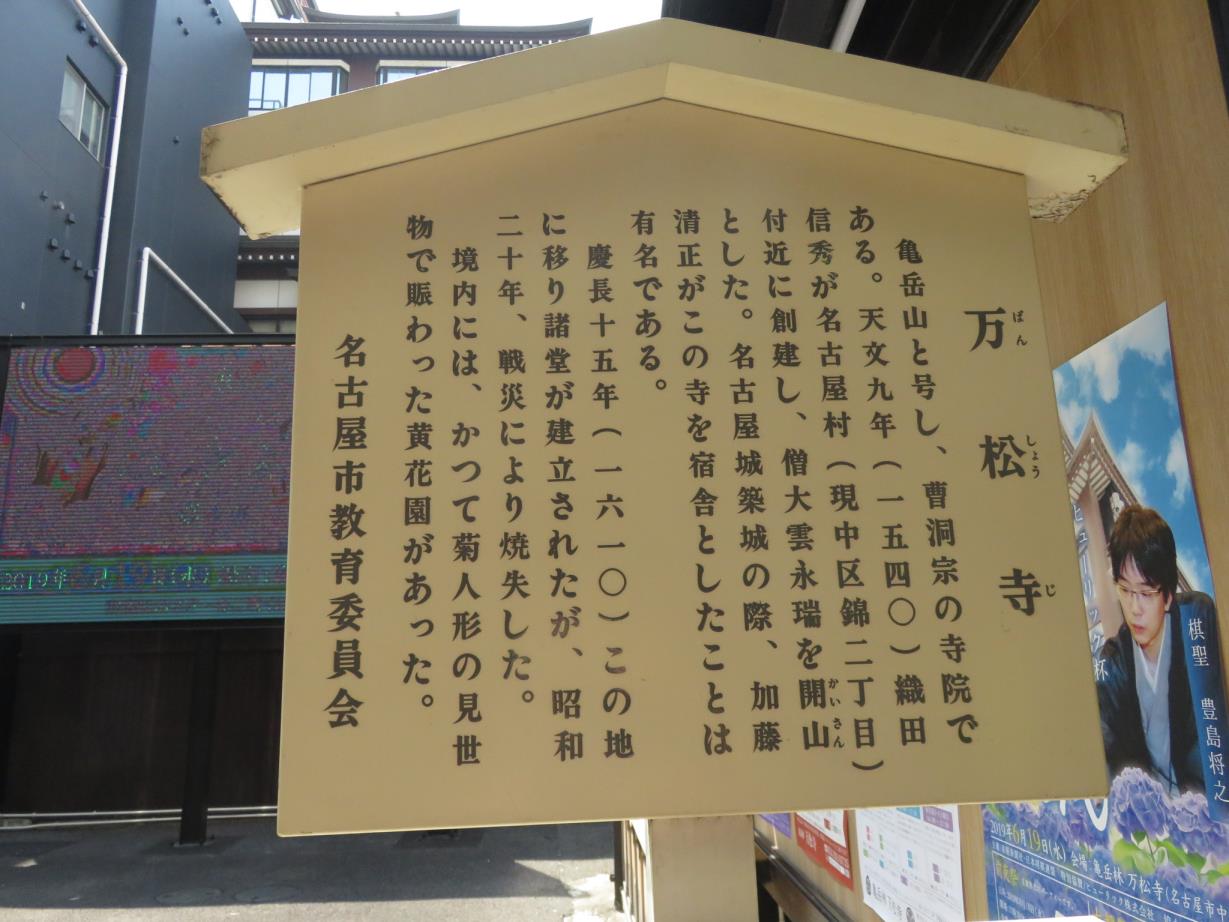 万松寺
ばん
しょう
じ
亀岳山と号し、曹洞宗の寺院で
ある。天文九年（一五四〇）織田
信秀が名古屋村（現中区錦二丁目）
付近に創建し、僧大雲永瑞を開山
かいさん
とした。名古屋城築城の際、加藤
清正がこの寺を宿舎としたことは
有名である。
慶長十五年（一六一〇）この地
に移り諸堂が建立されたが、昭和
二十年、戦災により焼失した。
境内には、かつて菊人形の見世
物で賑わった黄花園があった。
名古屋市教育委員会
2019年
ヒューリック杯
棋聖 豊島将之
2019年6月19日(水) 会場:亀岳林 万松寺(名古屋市中